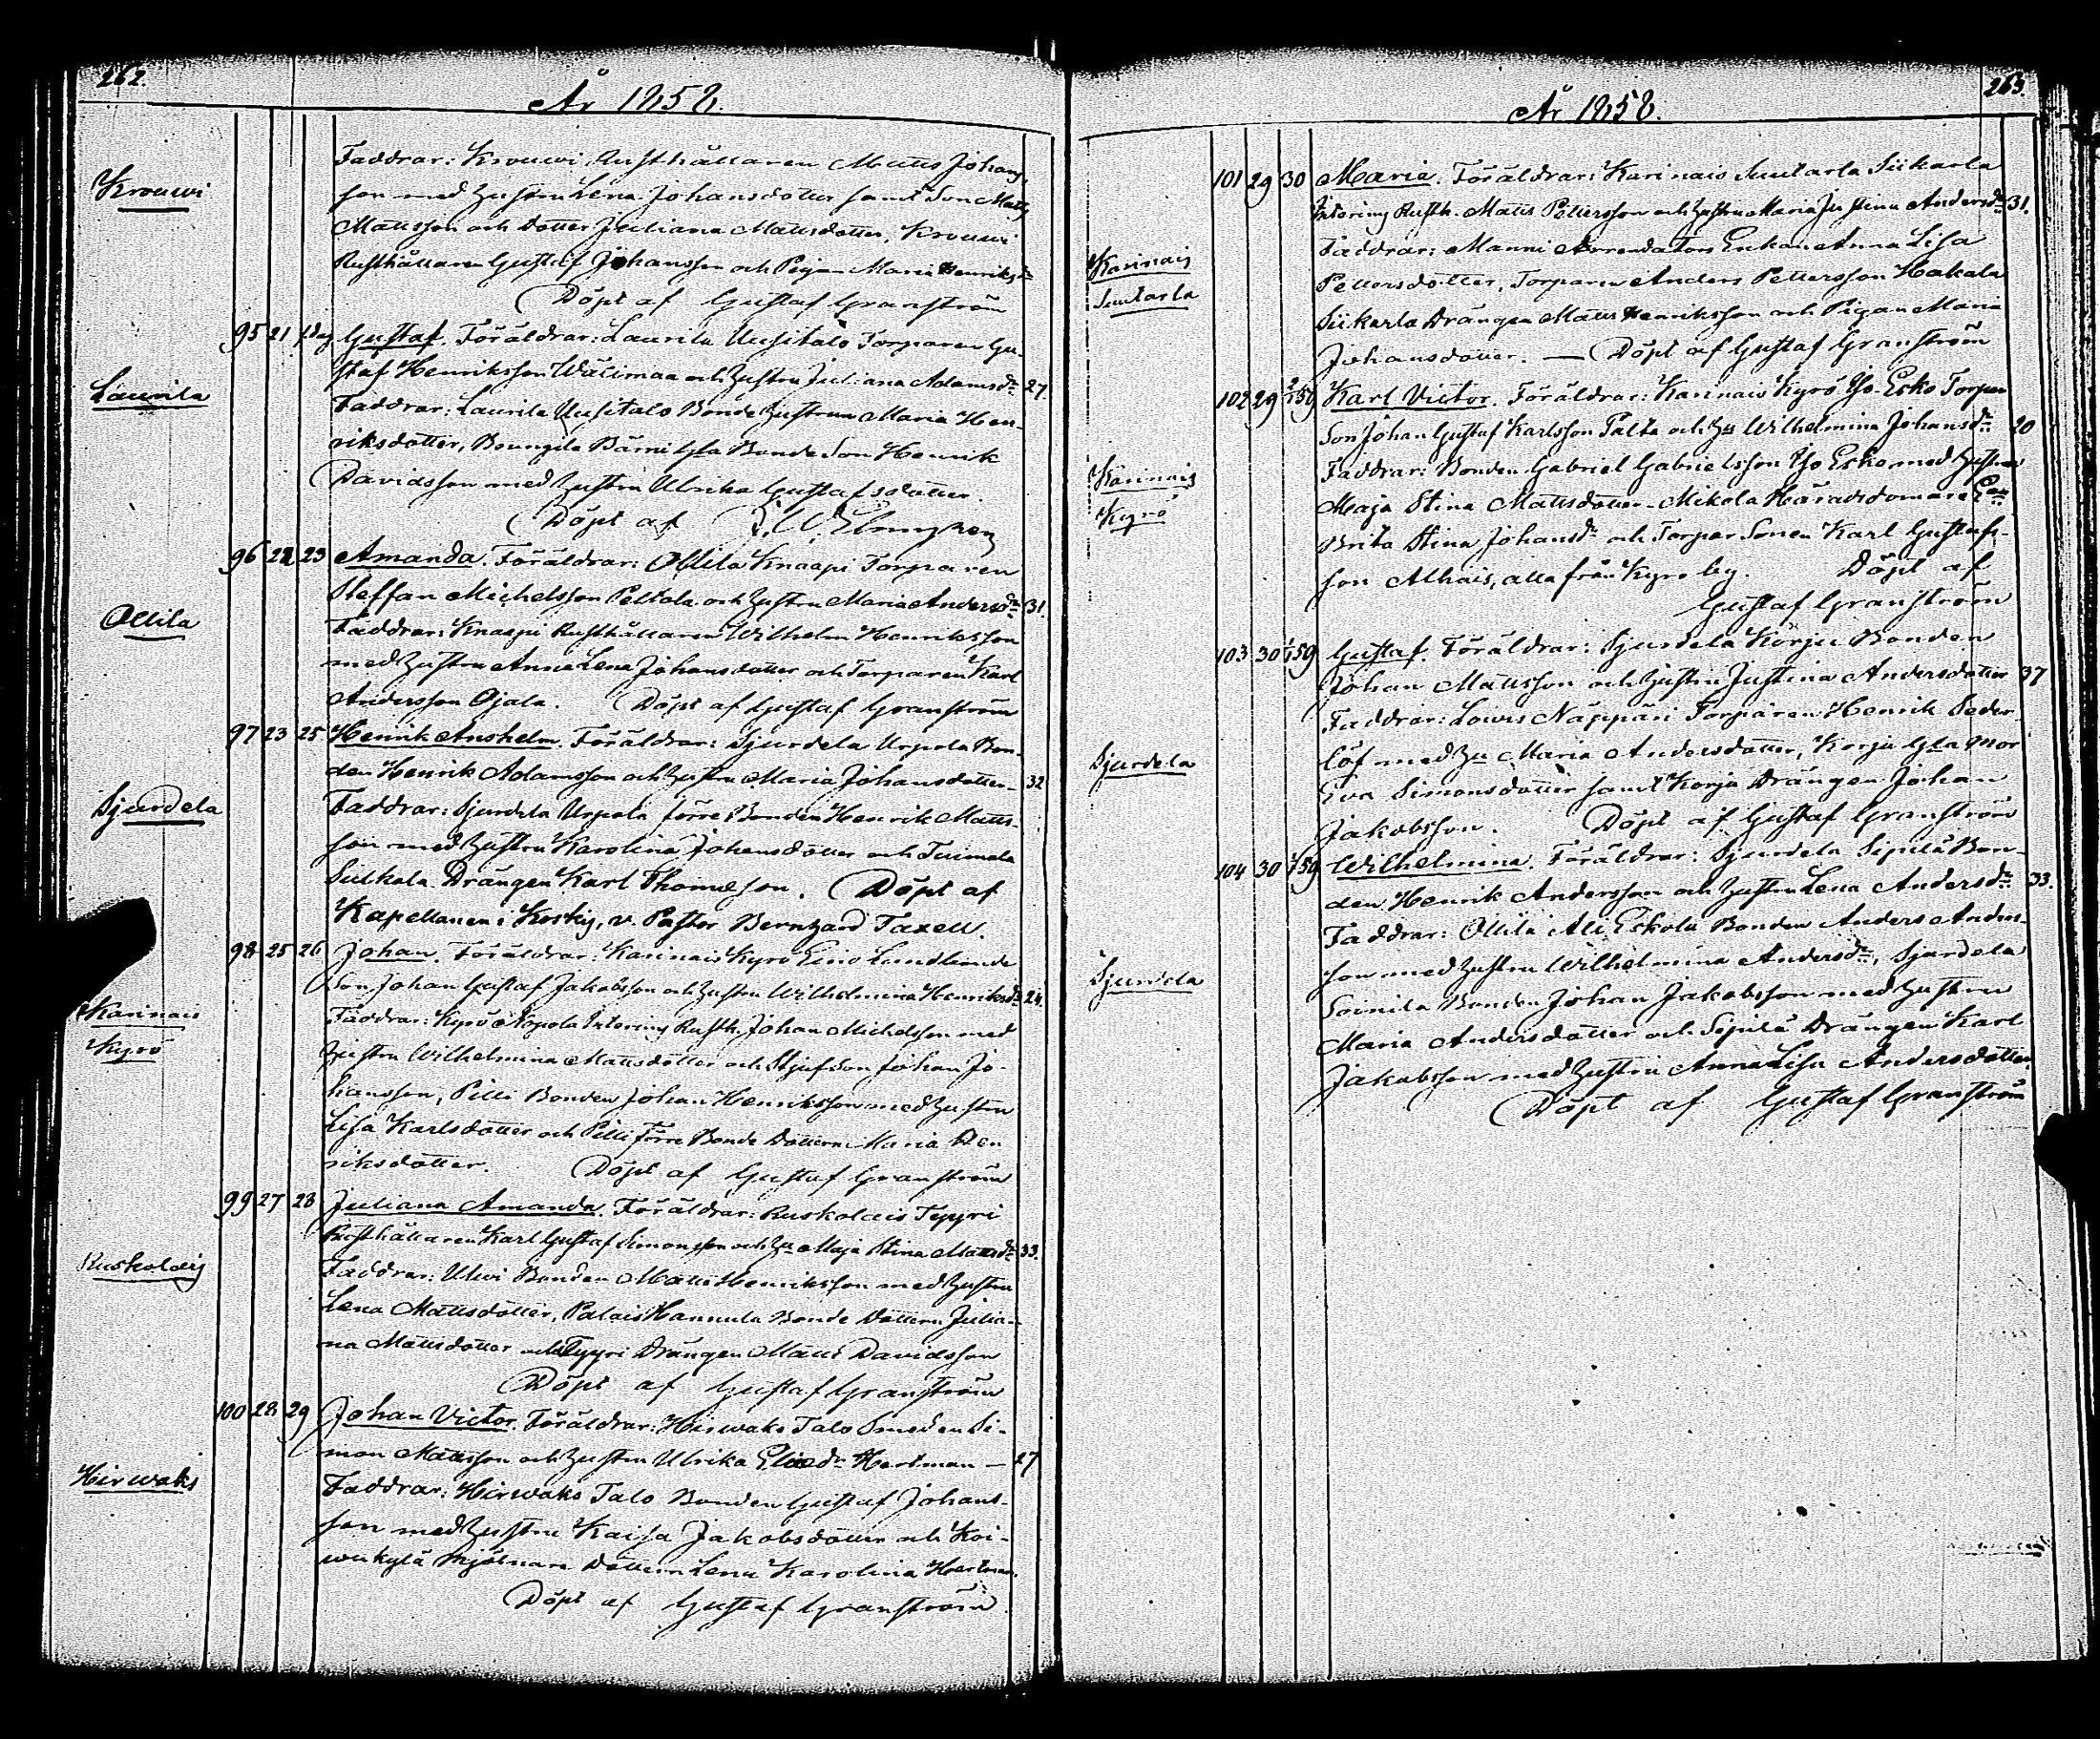 262.
År 1858.
Krouwi
Faddrar: Krouwi Rusthållaren Matts Johans-
son med hustru Lena Johansdotter samt Son Matts
Mattsson och dotter Juliana Mattsdotter, Krouwi
Rusthållaren Gustaf Johansson och Pigan Maria Henriksdr
Döpt af Gustaf Granström
Laurila
95 21 Gustaf. Föräldrar: Laurila Uusitalo Torparen Gu-
staf Henriksson Wälimaa och hustru Juliana Adamsdr 27.
Faddrar: Laurila Uusitalo Bonde hustrun Maria Hen-
riksdotter, Bonde Son Henrik
Davidsson med hustru Ulrika Gustafsdotter.
Döpt af
Ollila
96 22 23 Amanda. Föräldrar: Ollila Knaapi Torparen
Steffan Michelsson Peltola och hustru Maria Andersdr 31.
Faddrar: Knaapi Rusthållaren Wilhelm Henriksson
med hustru Anna Lena Johansdotter och Torparen Karl
Andersson Ojala. Döpt af Gustaf Granström
Sjurdela
97 23 25 Henrik Anshelm. Föräldrar: Sjurdela Urpola Bon-
den Henrik Adamsson och hustru Maria Johansdotter 32
Faddrar: Sjurdela Urpola förre Bonden Henrik Matts-
son med hustru Karolina Johansdotter och Tuimala
Suikola Drängen Karl Thomæson. Döpt af
Kapellanen i Koskis, v. Pastor Bernhard Taxell.
Karinais
Kyrö
98 25 26 Johan. Föräldrar: Karinais Kyrö Eino Landbonde
Son Johan Gustaf Jakobsson och hustru Wilhelmina Henriksdr 24.
Faddrar: Kyrö Nopola Interims Rusth. Johan Michelsson med
hustru Wilhelmina Mattsdotter och Stjufson Johan Jo-
hansson, Pilli Bonden Johan Henriksson med hustru
Lisa Karlsdotter och Pilli förre Bonde Dottern Maria Hen-
riksdotter. Döpt af Gustaf Granström
Ruskolais
99 27 28 Juliana Amanda. Föräldrar: Ruskolais Tyyri
Rusthållaren Karl Gustaf Simonsson och hu Maja Stina Mattsdr 33.
Faddrar: Uhwi Bonden Matts Henriksson med hustru
Lena Mattsdotter, Palais Hannula Bonde Dottern Julia-
na Mattsdotter och Tyyri Drängen Matts Davidsson
Döpt af Gustaf Granström
Hirwaks
100 28 29 Johan Victor. Föräldrar: Hirwaks Talo Smeden Si-
mon Mattsson och hustru Ulrika Eliædr Hartman — 27
Faddrar: Hirwaks Talo Bonden Gustaf Johans-
son med hustru Kaisa Jakobsdotter och Koi-
wukylä Mjölnare Dottern Lena Karolina Hartman.
Döpt af Gustaf Granström
263.
År 1858.
Karinais
Suutarla
101 29 30 Maria. Föräldrar: Karinais Suutarla Siikarla
Interims Rusth. Matts Pettersson och hustru Maria Justina Andersdr 31.
Faddrar: Manni Arrendators Enkan Anna Lisa
Pettersdotter, Torparen Anders Pettersson Hakala
Siikarla Drängen Matts Henriksson och Pigan Maria
Johansdotter. — Döpt af Gustaf Granström
Karinais
Kyrö
102 29 2/1 59 Karl Victor. Föräldrar: Karinais Kyrö Yso-Esko Torpar
Son Johan Gustaf Karlsson Palta och hu Wilhelmina Johansdr 20
Faddrar: Bonden Gabriel Gabrielsson Yso Esko med hustru
Maja Stina Mattsdotter. Mikola Häradsdomare
Brita Stina Johansdr och Torpar Sonen Karl Gustafs-
son Alhais, alla från Kyrö by. Döpt af
Gustaf Granström
Sjurdela
103 30 1/1 59 Gustaf. Föräldrar: Sjurdela Körju Bonden
Johan Mattsson och hustru Justina Andersdotter 37
Faddrar: Lowis Näppäri Torparen Henrik Seder-
löf med hu Maria Andersdotter, Korju gla Mor
Eva Simonsdotter samt Korju Drängen Johan
Jakobsson. Döpt af Gustaf Granström
Sjurdela
104 30 1/1 59 Wilhelmina. Föräldrar: Sjurdela Sipilä Bon-
den Henrik Andersson och hustru Lena Andersdr 33.
Faddrar: Ollila Ali Eskola Bonden Anders Anders-
son med hustru Wilhelmina Andersdr, Sjurdela
Soinila Bonden Johan Jakobsson med hustru
Maria Andersdotter och Sipilä Drängen Karl
Jakobsson med hustru Anna Lisa Andersdotter.
Döpt af Gustaf Granström